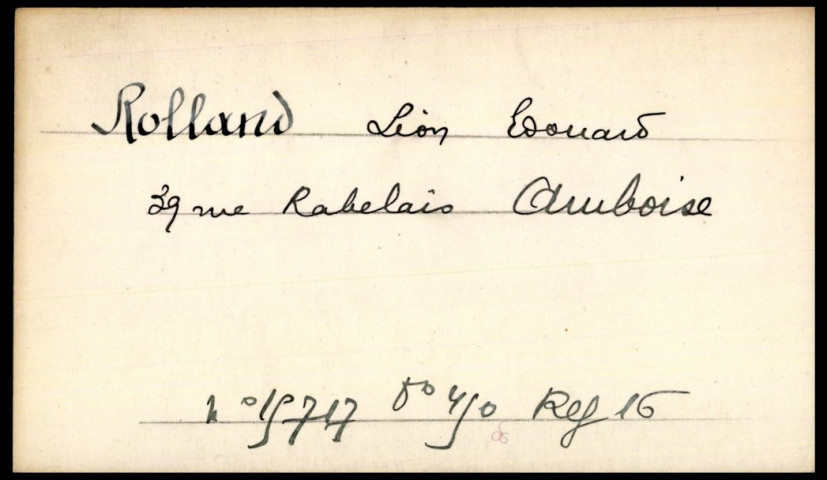 Rolland Léon Edouard
39 rue Rabelais Amboise
No 15717 fo 450 Reg 16